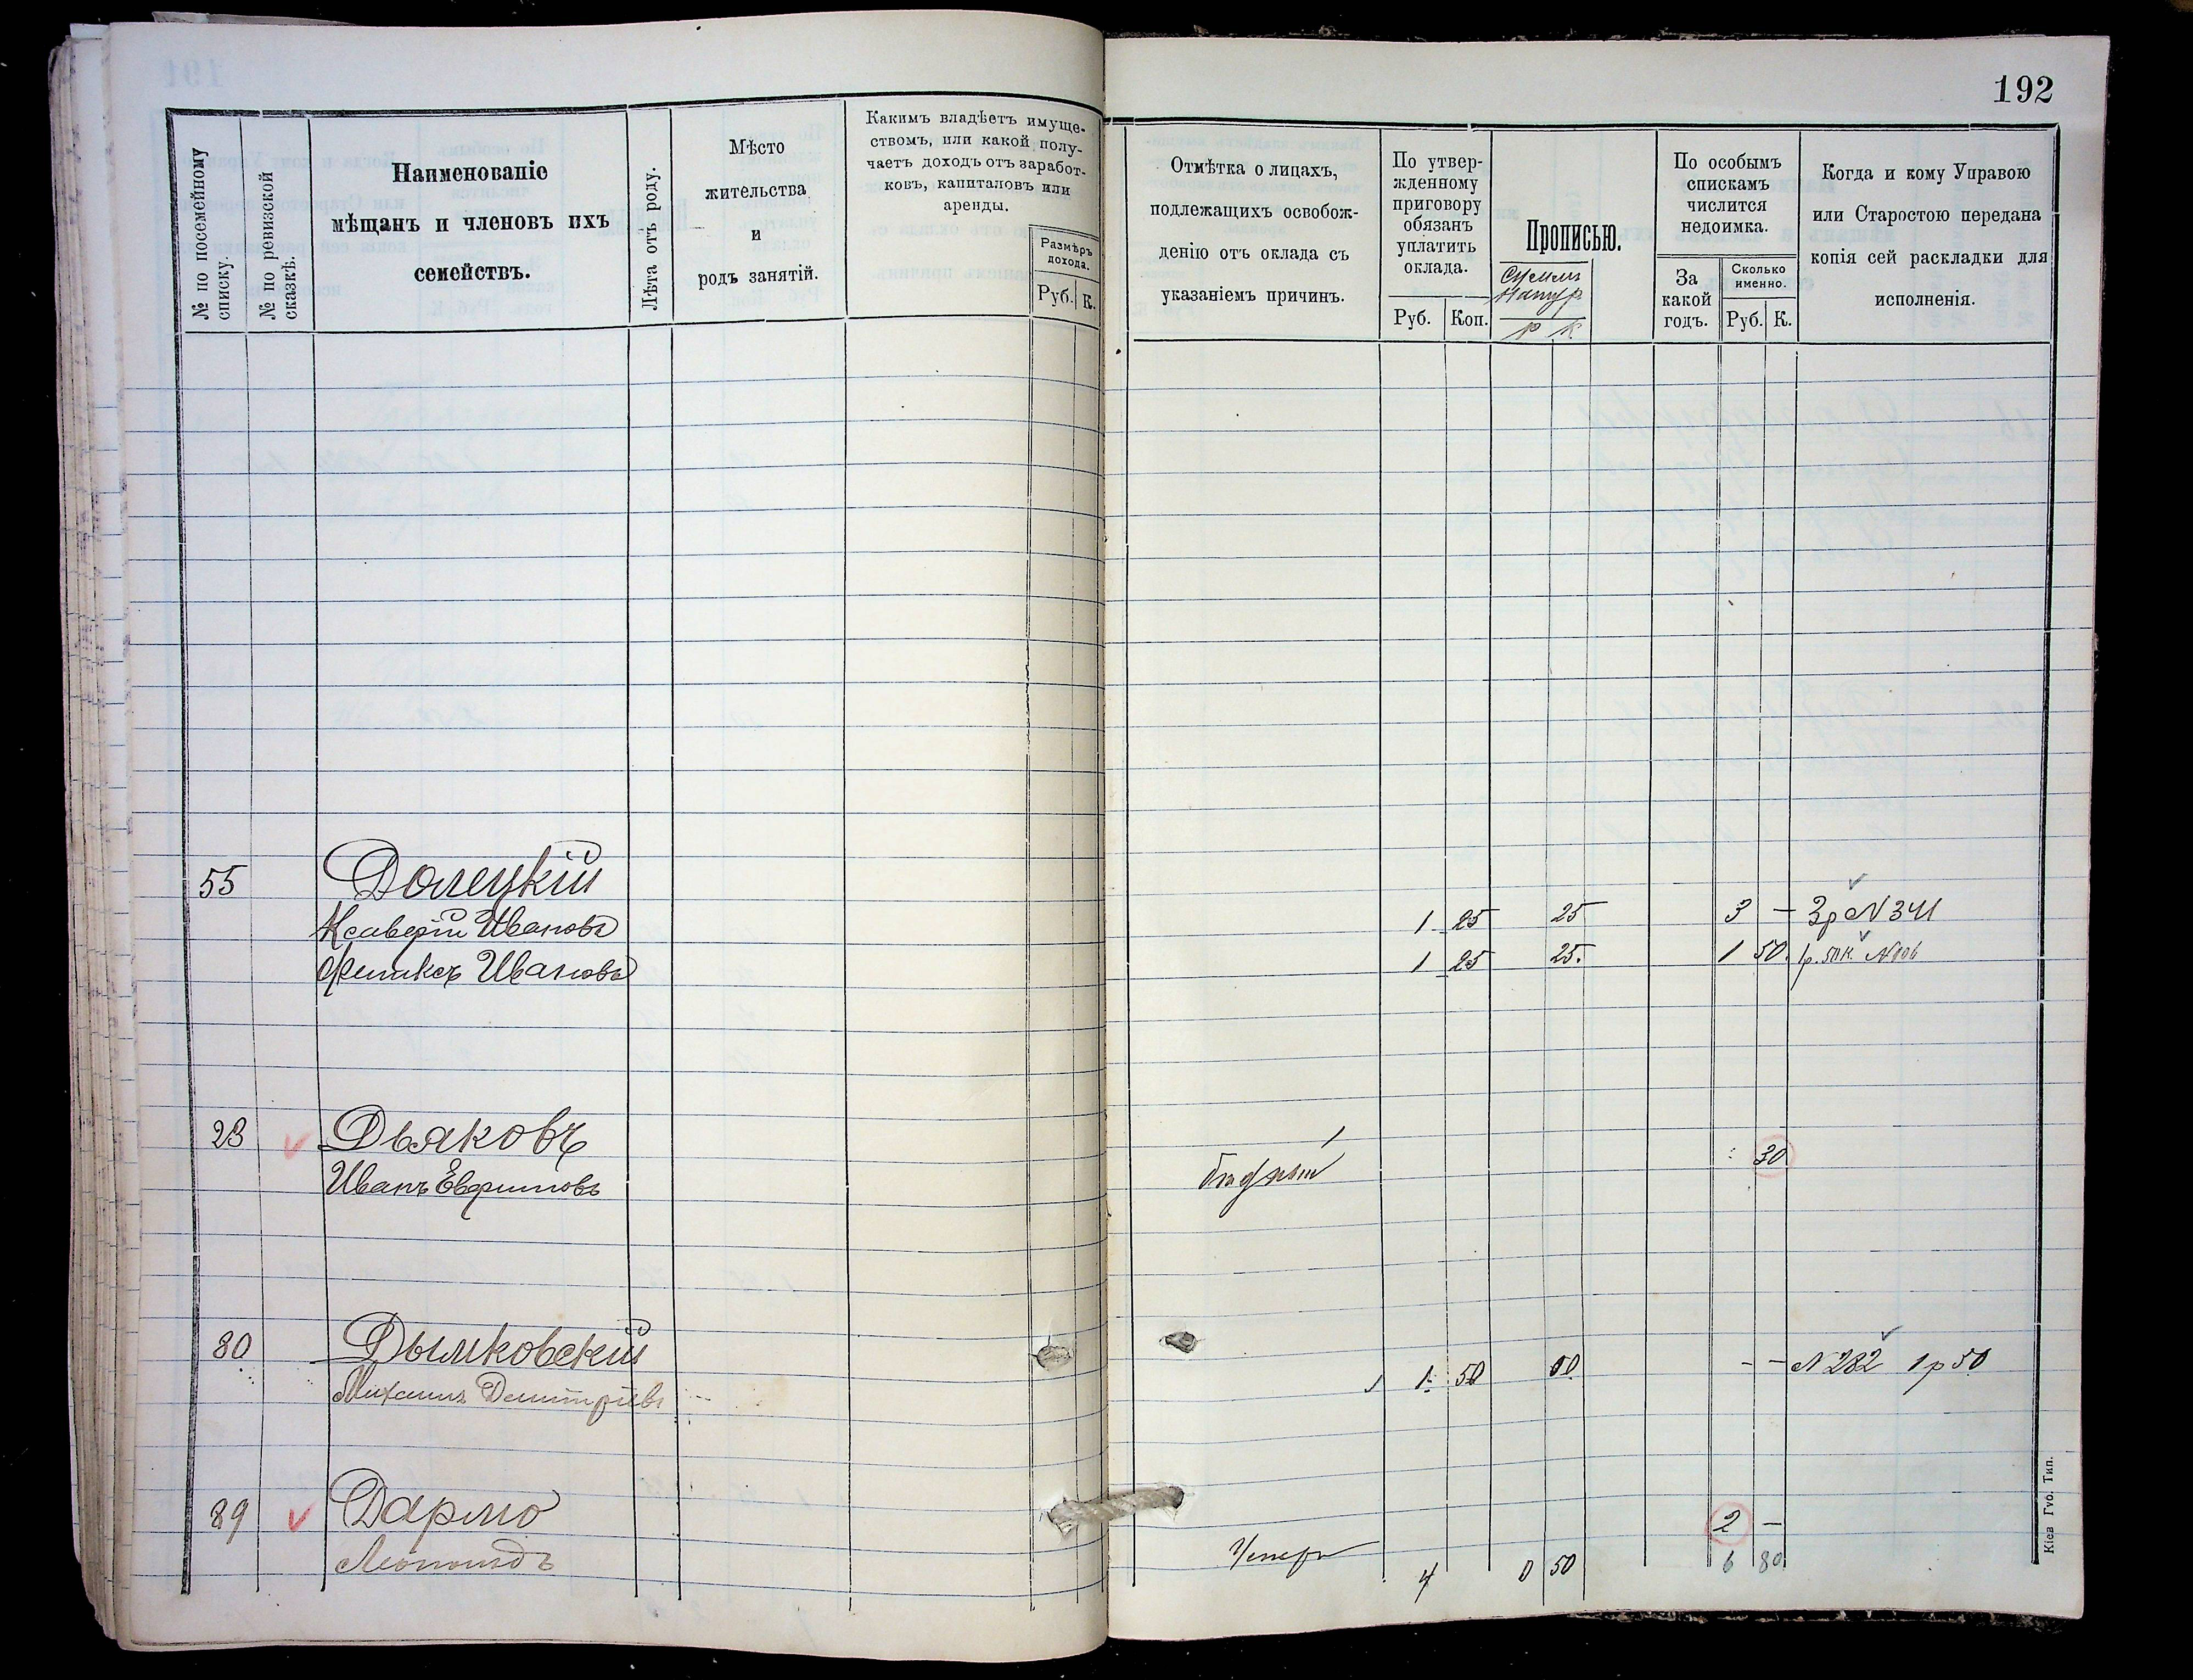 192
№ по посемейному списку.
№ по ревизской сказкѣ.
Наименованіе
мѣщанъ и членовъ ихъ
семействъ.
Лѣта отъ роду.
Мѣсто
жительства
и
родъ занятій.
Какимъ владѣетъ имуще-
ствомъ, или какой полу-
чаетъ доходъ отъ заработ-
ковъ, капиталовъ или
аренды.
Размѣръ
дохода.
Руб. К.
Отмѣтка о лицахъ,
подлежащихъ освобож-
денію отъ оклада съ
указаніемъ причинъ.
По утвер-
жденному
приговору
обязанъ
уплатить
оклада.
Руб. Коп.
Прописью.
р к
По особымъ
спискамъ
числится
недоимка.
За
какой
годъ.
Сколько
именно.
Руб. К.
Когда и кому Управою
или Старостою передана
копія сей раскладки для
исполненія.
55 Долецкій
Ксаверій Ивановъ 1 25 25 3 — 3р N 341
Феликсъ Ивановъ 1 25 25. 1 50. 1р. 50 к.
23 Дьяковъ 30
Иванъ Евфимовъ бѣдный
80 Дымковскій — — N 282 1 р 50
Михаилъ Дмитріевъ 1 50
89 Дармо 2 —
Леопольдъ Умеръ
4 0 50 6 80
Кіев Губ. Тип.